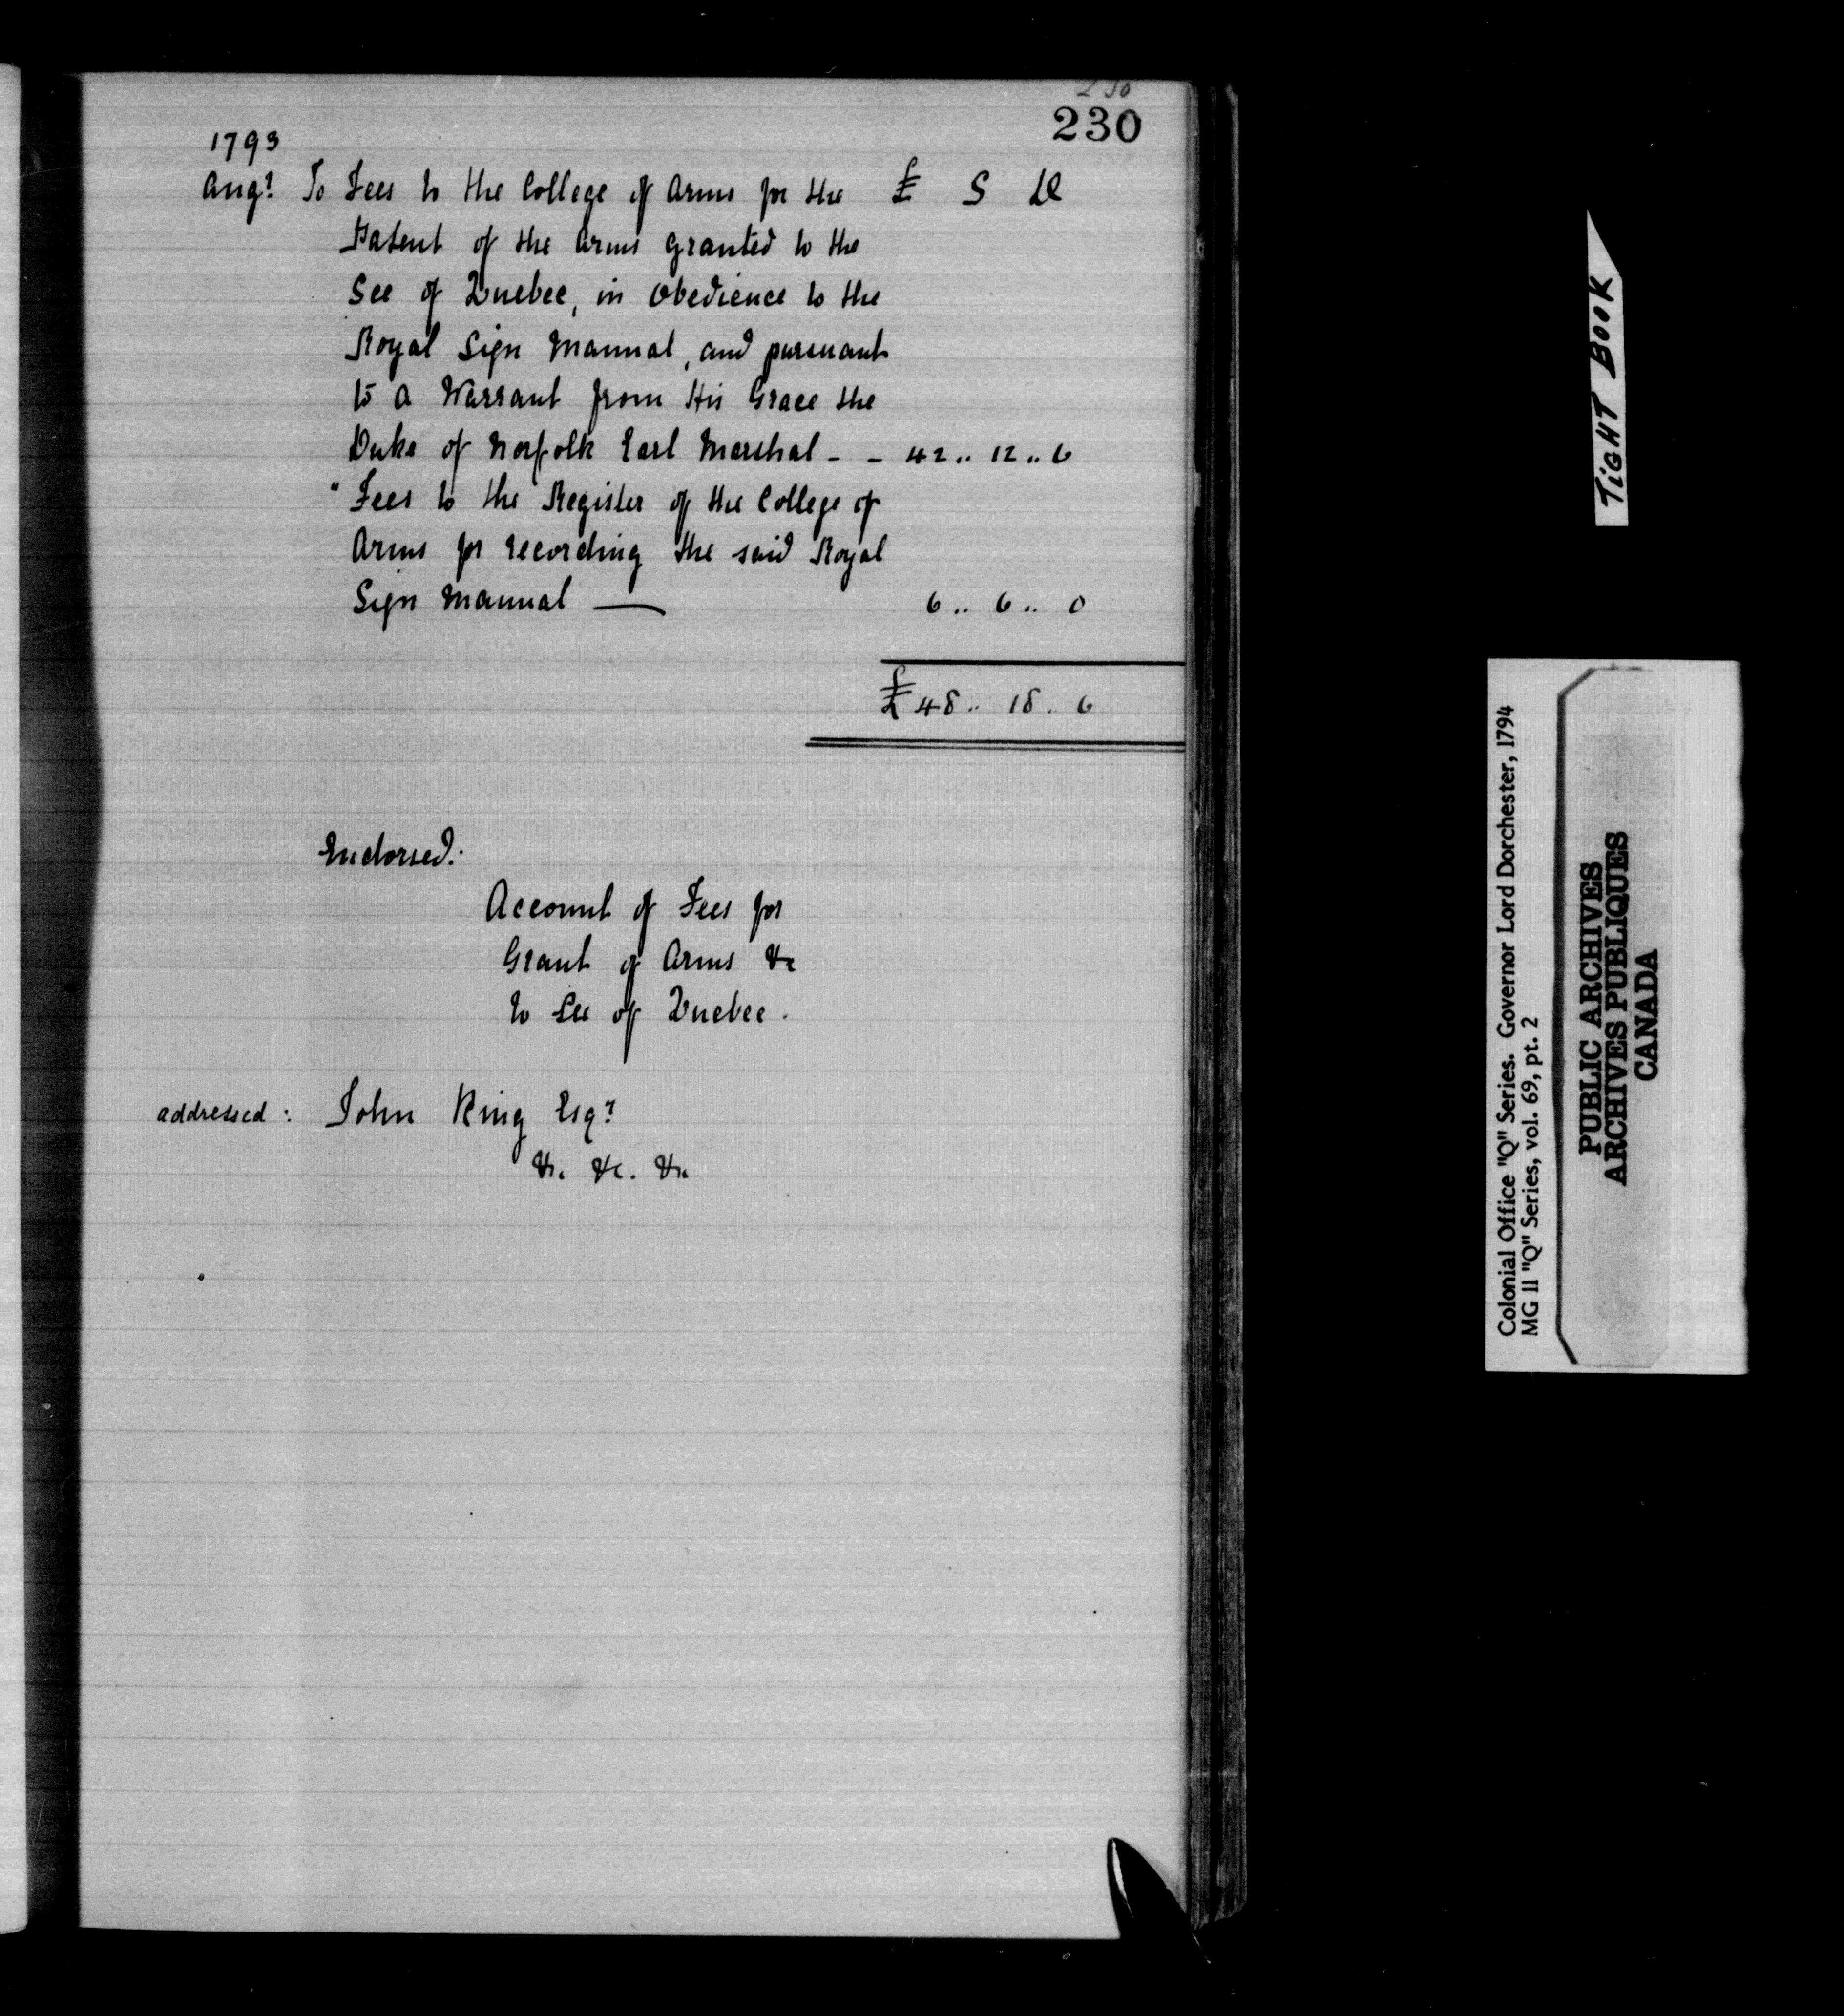 230
230
1793
Augt. To Fees to the College of Arms for the £ S D
Patent of the Arms granted to the
See of Quebec, in Obedience to the
Royal Sign Manual, and pursuant
to a Warrant from His Grace the
Duke of Norfolk Earl Marshal - - 42 .. 12 .. 6
" Fees to the Register of the College of
Arms for recording the said Royal
Sign Manual — 6 .. 6 .. 0
£ 48 .. 18 . 6
Endorsed:
Account of Fees for
Grant of Arms &c
to See of Quebec.
addressed: John King Esqr.
&c. &c. &c
TIGHT BOOK
Colonial Office "Q" Series. Governor Lord Dorchester, 1794
MG 11 "Q" Series, vol. 69, pt. 2
PUBLIC ARCHIVES
ARCHIVES PUBLIQUES
CANADA